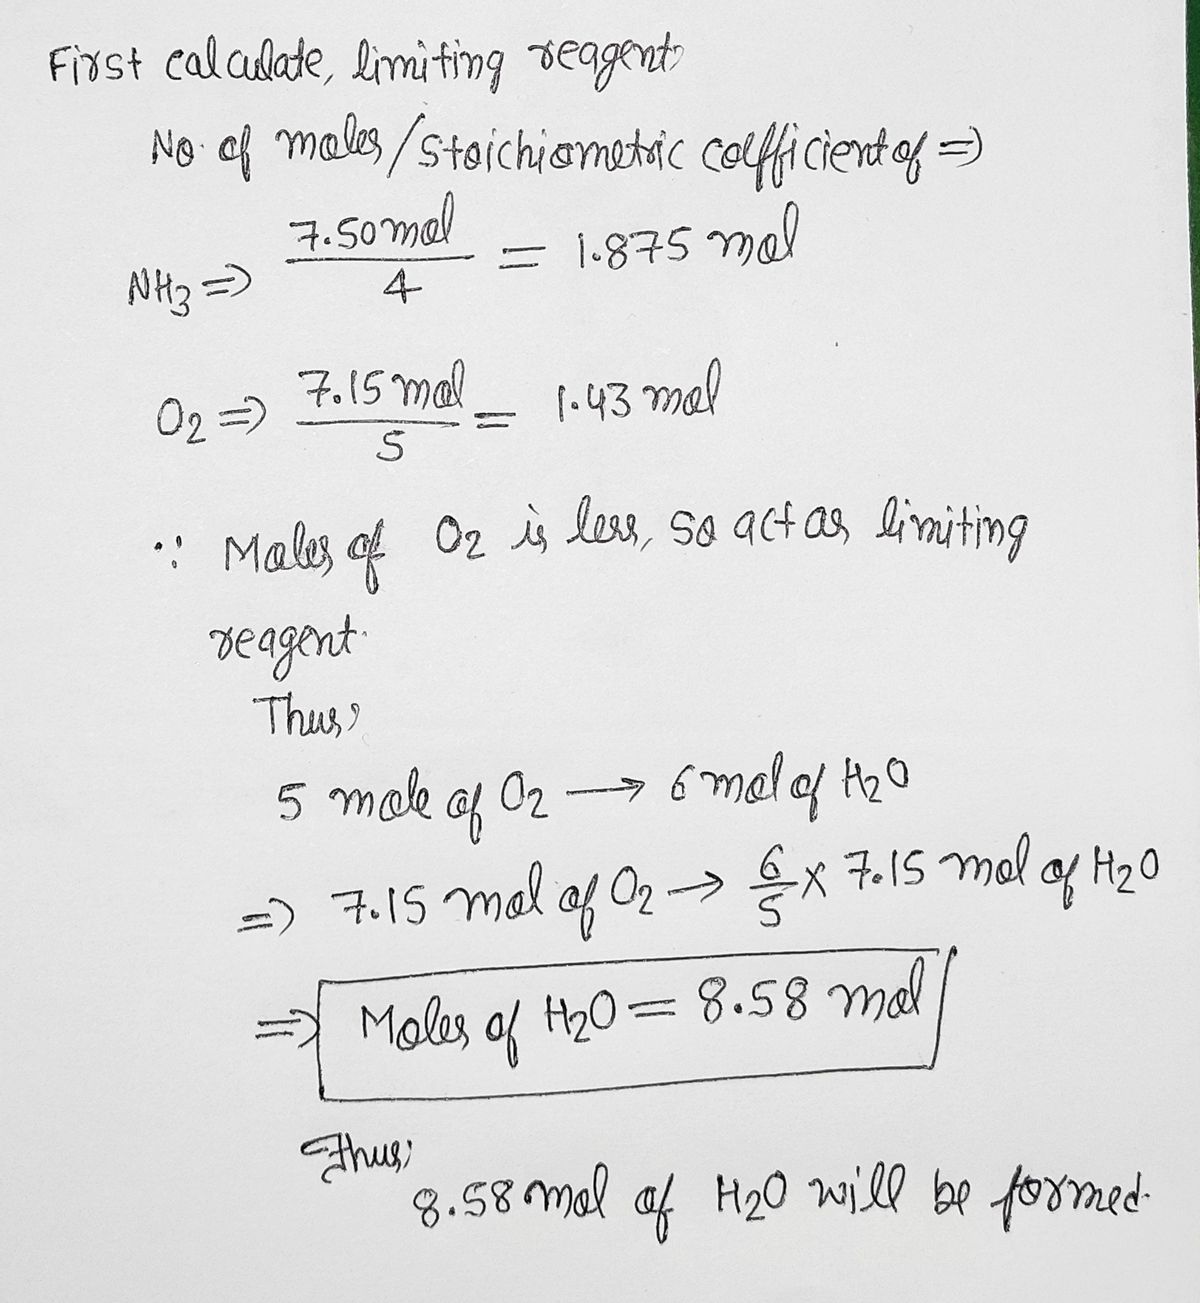 First calculate, limiting reagent
No. of moles/stoichiometric coefficient of ⇒
NH3 ⇒ 7.50 mol / 4 = 1.875 mol
O2 ⇒ 7.15 mol / 5 = 1.43 mol
∵ Moles of O2 is less, so act as limiting
reagent.
Thus,
5 mole of O2 → 6 mol of H2O
⇒ 7.15 mol of O2 → 6/5 × 7.15 mol of H2O
⇒ Moles of H2O = 8.58 mol
Thus;
8.58 mol of H2O will be formed.